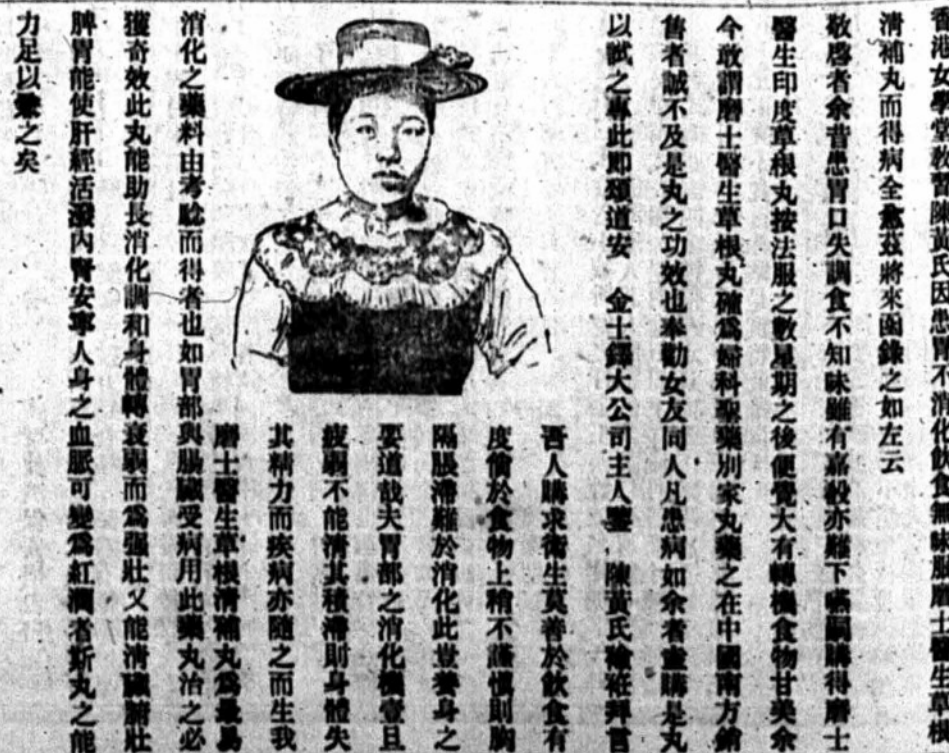 香港女學堂教習陳黃氏因患胃不消化飲食無味服磨士醫生草根
清補丸而得病全愈茲將來函錄之如左云
敬啓者余昔患胃口失調食不知味雖有嘉殽亦難下嚥嗣購得磨士
醫生印度草根丸按法服之數星期之後便覺大有轉機食物甘美余
今敢謂磨士醫生草根丸確爲婦科聖藥別家丸藥之在中國南方銷
售者誠不及是丸之功效也奉勸女友同人凡患病如余者盍購是丸
以試之專此卽頌道安 金士鐸大公司主人鑒 陳黃氏拜言
吾人購求衛生莫善於飲食有
度倘於食物上稍不謹愼則胸
隔脹滯難於消化此豈養身之
要道哉夫胃部之消化機壹且
疲弱不能淸其積滯則身體失
其精力而疾病亦隨之而生我
磨士醫生草根清補丸爲最易
消化之藥料由考驗而得者也如胃部與腸臟受病用此藥丸治之必
獲奇效此丸能助長消化調和身體轉衰弱而爲强壯又能清臟腑壯
脾胃能使肝經活潑內腎安寧人身之血脈可變爲紅濶者斯丸之能
力足以兼之矣